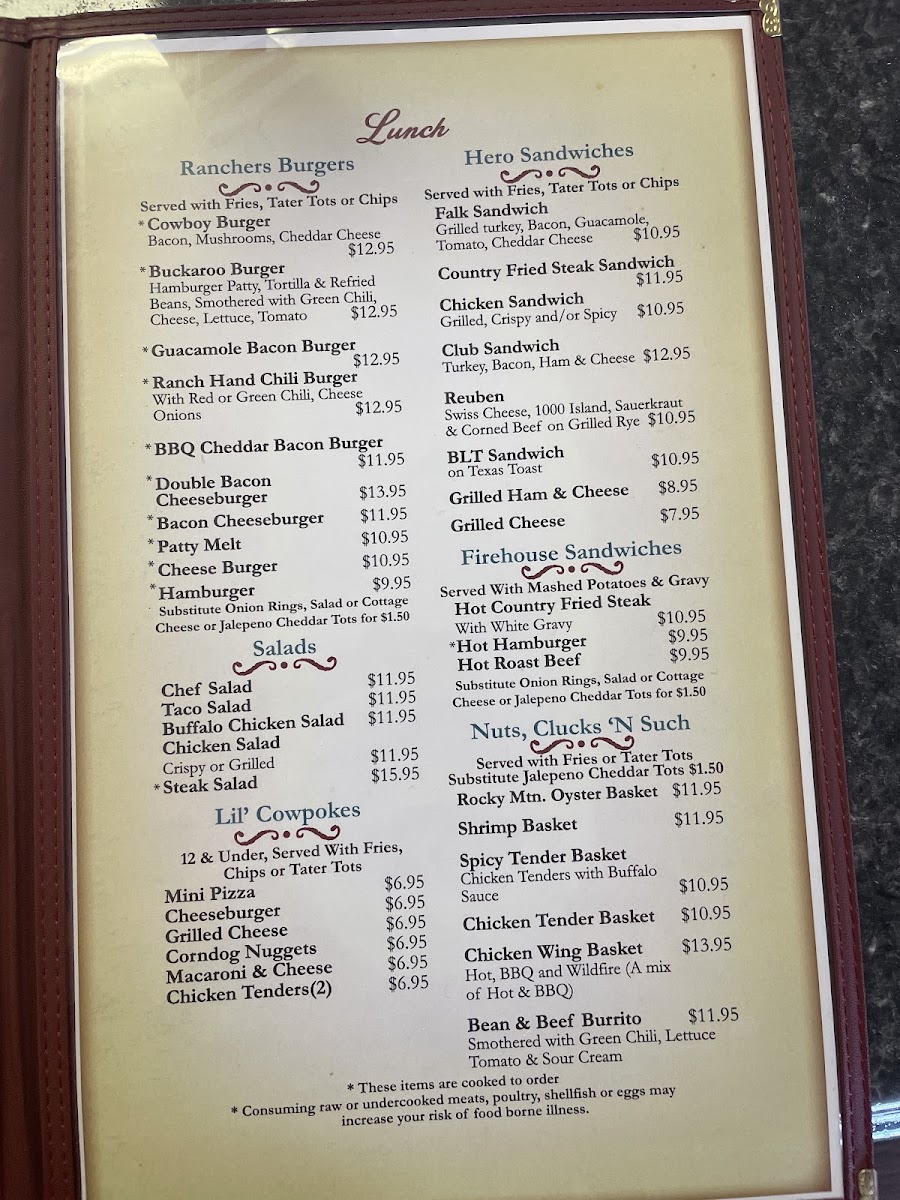 Lunch
Ranchers Burgers
Served with Fries, Tater Tots or Chips
*Cowboy Burger
Bacon, Mushrooms, Cheddar Cheese
$12.95
*Buckaroo Burger
Hamburger Patty, Tortilla & Refried
Beans, Smothered with Green Chili,
Cheese, Lettuce, Tomato $12.95
*Guacamole Bacon Burger
$12.95
*Ranch Hand Chili Burger
With Red or Green Chili, Cheese
Onions $12.95
*BBQ Cheddar Bacon Burger
$11.95
*Double Bacon
Cheeseburger $13.95
*Bacon Cheeseburger $11.95
*Patty Melt $10.95
*Cheese Burger $10.95
*Hamburger $9.95
Substitute Onion Rings, Salad or Cottage
Cheese or Jalepeno Cheddar Tots for $1.50
Salads
Chef Salad $11.95
Taco Salad $11.95
Buffalo Chicken Salad $11.95
Chicken Salad
Crispy or Grilled $11.95
*Steak Salad $15.95
Lil' Cowpokes
12 & Under, Served With Fries,
Chips or Tater Tots
Mini Pizza $6.95
Cheeseburger $6.95
Grilled Cheese $6.95
Corndog Nuggets $6.95
Macaroni & Cheese $6.95
Chicken Tenders(2) $6.95
Hero Sandwiches
Served with Fries, Tater Tots or Chips
Falk Sandwich
Grilled turkey, Bacon, Guacamole,
Tomato, Cheddar Cheese $10.95
Country Fried Steak Sandwich
$11.95
Chicken Sandwich
Grilled, Crispy and/or Spicy $10.95
Club Sandwich
Turkey, Bacon, Ham & Cheese $12.95
Reuben
Swiss Cheese, 1000 Island, Sauerkraut
& Corned Beef on Grilled Rye $10.95
BLT Sandwich
on Texas Toast $10.95
Grilled Ham & Cheese $8.95
Grilled Cheese $7.95
Firehouse Sandwiches
Served With Mashed Potatoes & Gravy
Hot Country Fried Steak
With White Gravy $10.95
*Hot Hamburger $9.95
Hot Roast Beef $9.95
Substitute Onion Rings, Salad or Cottage
Cheese or Jalepeno Cheddar Tots for $1.50
Nuts, Clucks 'N Such
Served with Fries or Tater Tots
Substitute Jalepeno Cheddar Tots $1.50
Rocky Mtn. Oyster Basket $11.95
Shrimp Basket $11.95
Spicy Tender Basket
Chicken Tenders with Buffalo
Sauce $10.95
Chicken Tender Basket $10.95
Chicken Wing Basket $13.95
Hot, BBQ and Wildfire (A mix
of Hot & BBQ)
Bean & Beef Burrito $11.95
Smothered with Green Chili, Lettuce
Tomato & Sour Cream
* These items are cooked to order
* Consuming raw or undercooked meats, poultry, shellfish or eggs may
increase your risk of food borne illness.